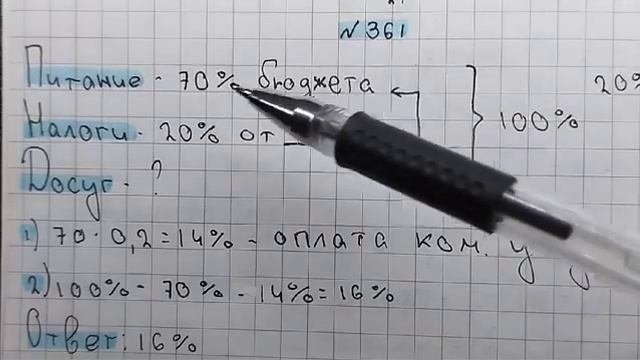 №361
Питание - 70% бюджета
20%
Налоги - 20% от
100%
Досуг - ?
1) 70 · 0,2 = 14% - оплата ком. у
2) 100% - 70% - 14% = 16%
Ответ: 16%